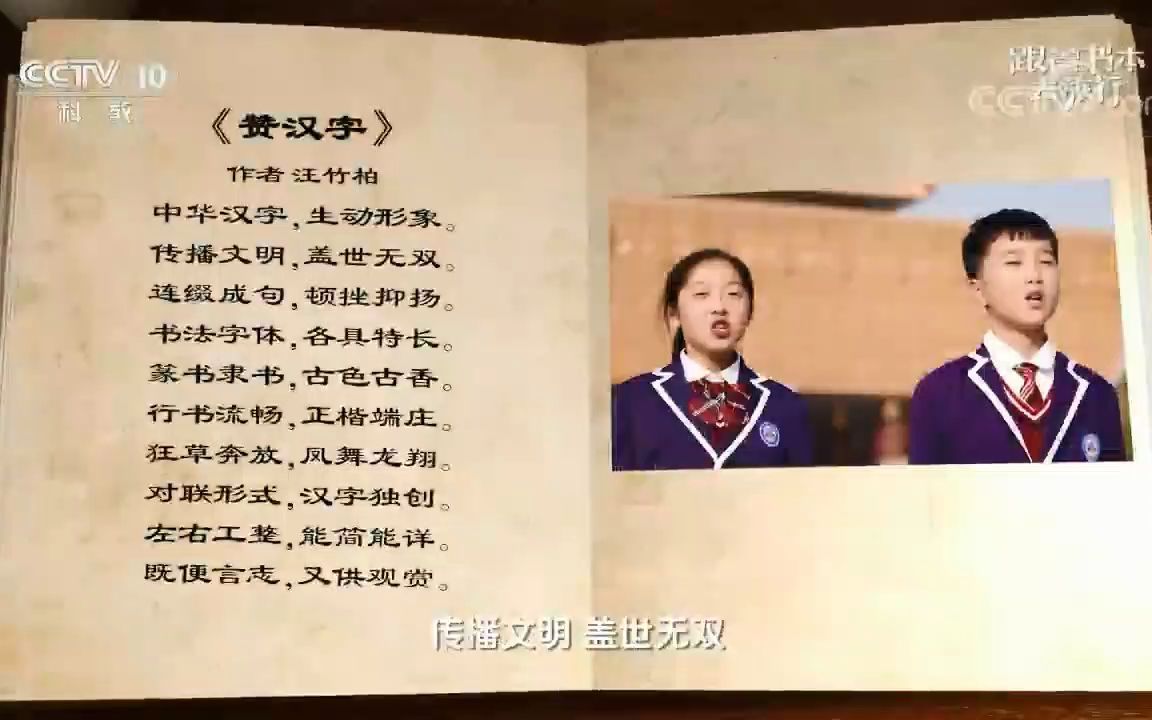 CCTV 10
科 教
跟着书本
去旅行
《赞汉字》
作者 汪竹柏
中华汉字,生动形象。
传播文明,盖世无双。
连缀成句,顿挫抑扬。
书法字体,各具特长。
篆书隶书,古色古香。
行书流畅,正楷端庄。
狂草奔放,凤舞龙翔。
对联形式,汉字独创。
左右工整,能简能详。
既便言志,又供观赏。
传播文明 盖世无双